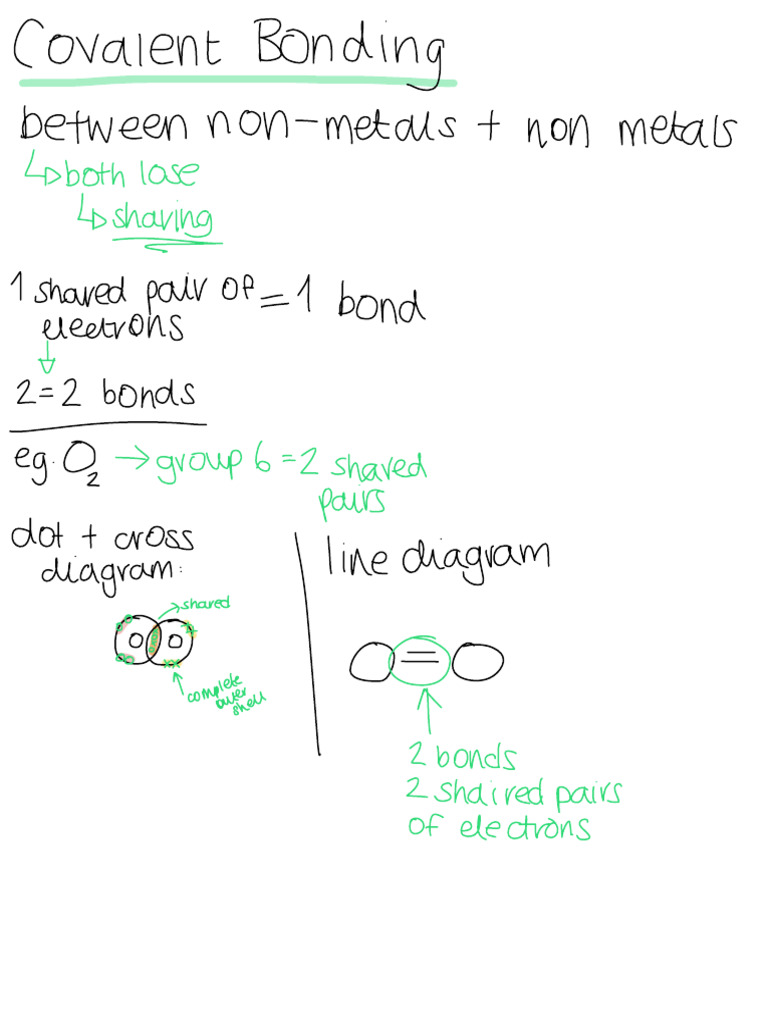 Covalent Bonding
between non-metals + non metals
↳both lose
↳sharing
1 shared pair of = 1 bond
electrons
2=2 bonds
eg. O₂ → group 6 = 2 shared
pairs
dot + cross
diagram:
shared
O O
complete
outer
shell
line diagram
O=O
2 bonds
2 shaired pairs
of electrons